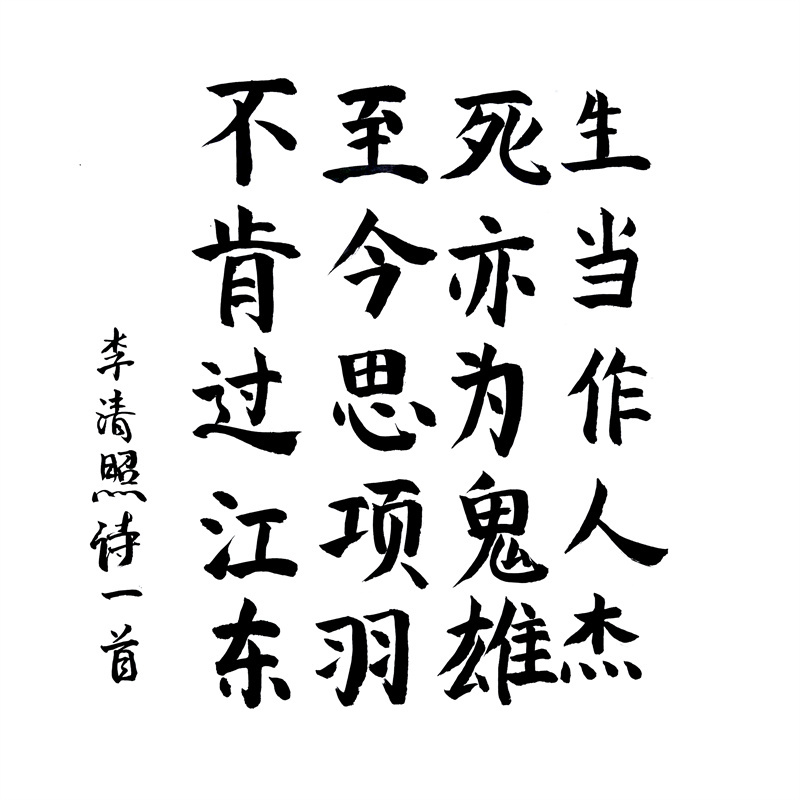 生当作人杰
死亦为鬼雄
至今思项羽
不肯过江东
李清照诗一首